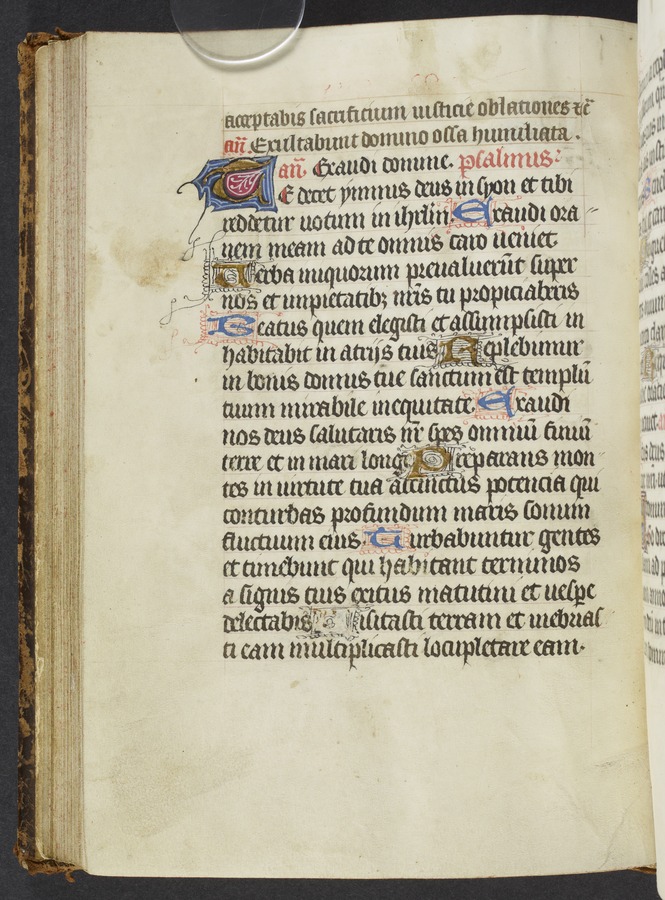 acceptabis sacrificium iusticie oblationes &c̃
añ. Exultabunt domino ossa humiliata.
añ. Exaudi domine. psalmus:
TE decet ymnus deus in syon et tibi
reddetur uotum in ihrlm̃. Exaudi ora
nem meam ad te omnis caro ueniet
Uerba iniquorum preualuerũt super
nos et impietatibꝫ nr̃is tu propiciaberis
Beatus quem elegisti et assumpsisti in
habitabit in atrijs tuis Replebimur
in bonis domus tue sanctum est templũ
tuum mirabile inequitate. Exaudi
nos deus salutaris nr̃ spes omniũ finiũ
terre et in mari longe Preparans mon
tes in uirtute tua accinctus potencia qui
conturbas profundum maris sonum
fluctuum eius. Turbabuntur gentes
et timebunt qui habitant terminos
a signis tuis exitus matutini et uespe
delectabis Uisitasti terram et inebrias
ti eam multiplicasti locupletare eam.